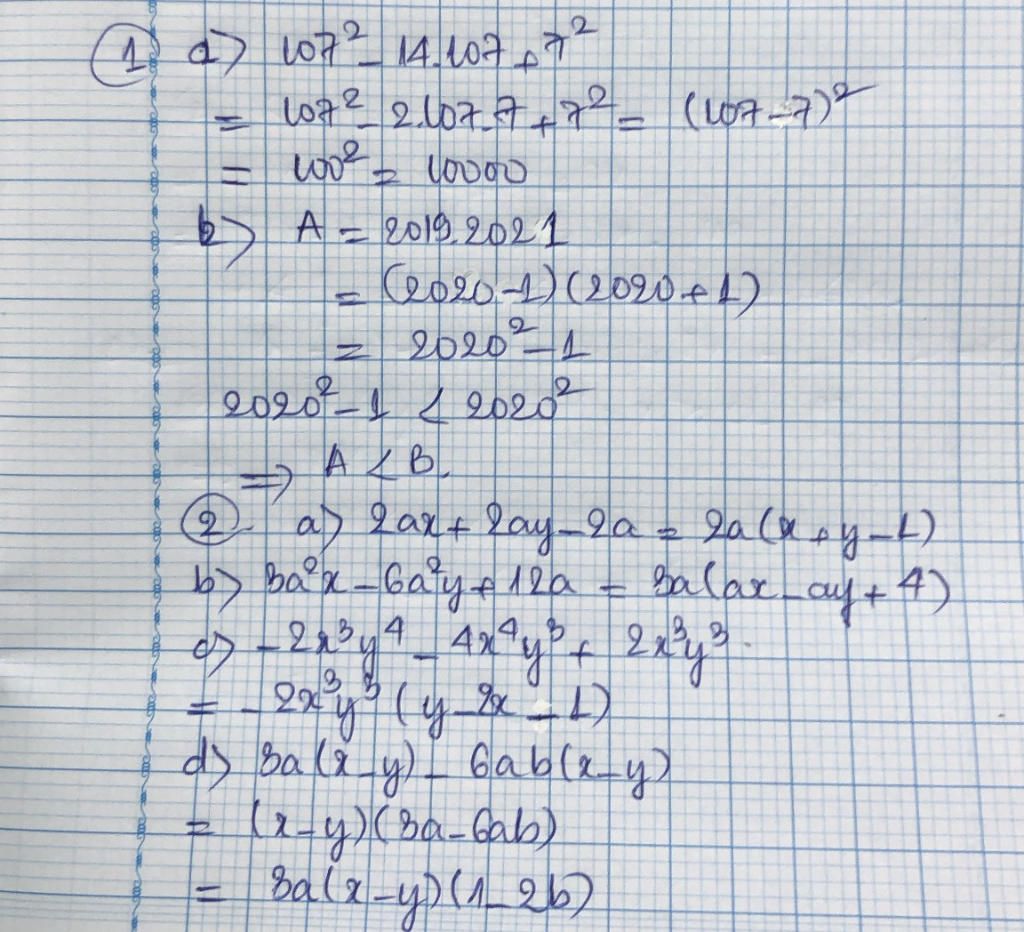 ① a) 107² - 14.107 + 7²
= 107² - 2.107.7 + 7² = (107-7)²
= 100² = 10000
b) A = 2019.2021
= (2020-1)(2020+1)
= 2020² - 1
2020² - 1 < 2020²
⇒ A < B.
②. a) 2ax + 2ay - 2a = 2a(x+y-1)
b) 3a²x - 6a²y + 12a = 3a(ax - ay + 4)
c) -2x³y⁴ - 4x⁴y³ + 2x³y³.
= -2x³y³(y - 2x - 1)
d) 3a(x-y) - 6ab(x-y)
= (x-y)(3a-6ab)
= 3a(x-y)(1-2b)